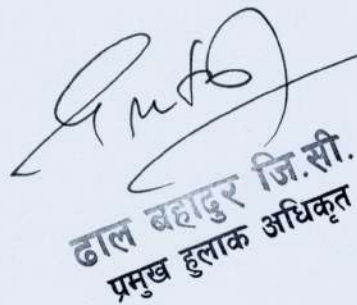 ढाल बहादुर जि.सी.
प्रमुख हुलाक अधिकृत